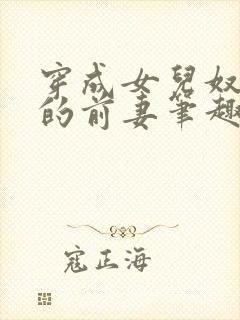 穿成女兒奴
的前妻筆趣
寇正海